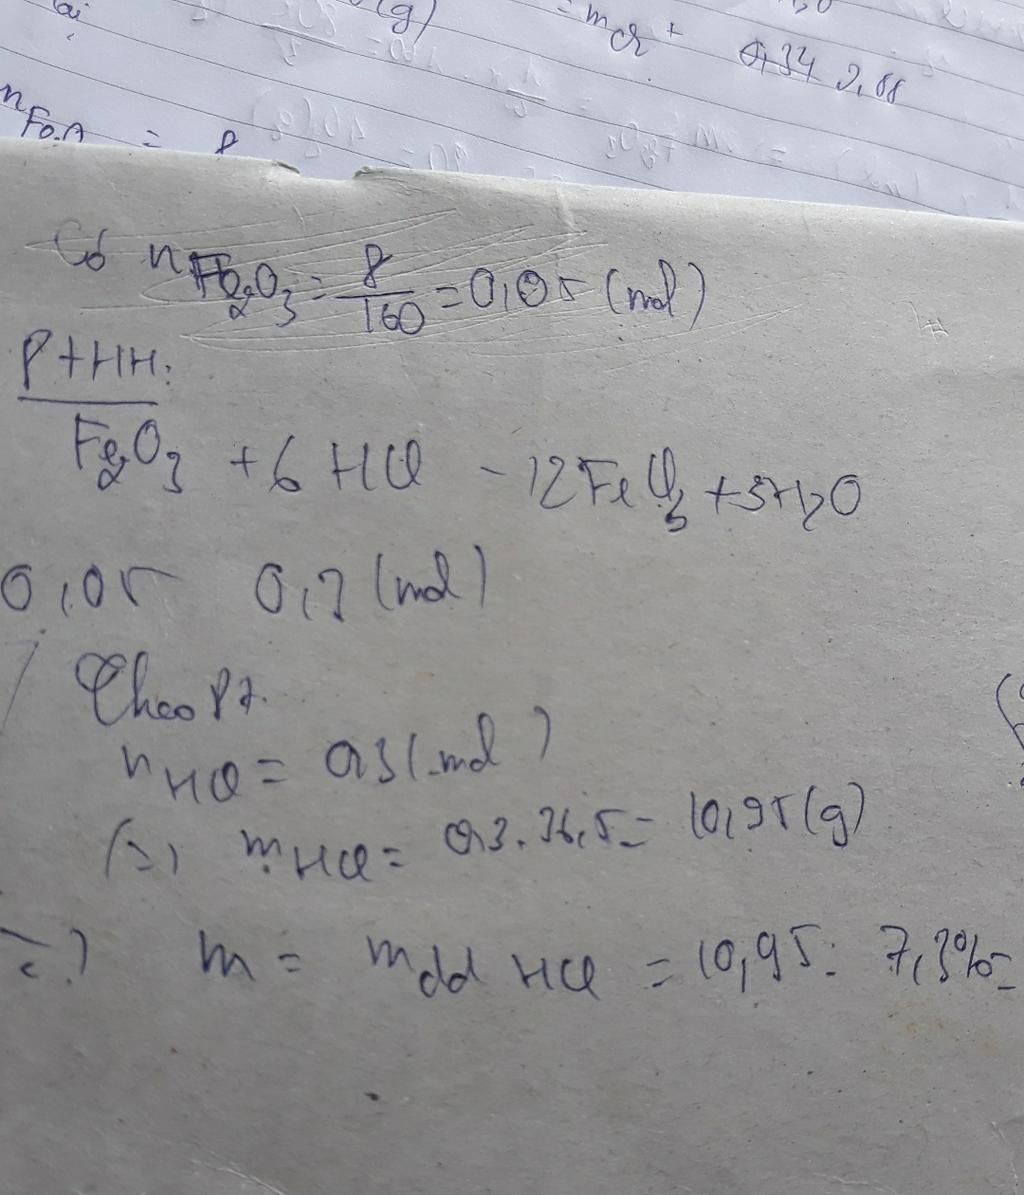 (g)
= m_Cr + 0,34 2,88
n_Fe₂O₃ = 8
Có n_Fe₂O₃ = 8/160 = 0,05 (mol)
PTHH:
Fe₂O₃ + 6 HCl -> 2FeCl₃ + 3H₂O
0,05 0,3 (mol)
Theo Pt.
n_HCl = 0,3 (mol)
(=) m_HCl = 0,3. 36,5 = 10,95 (g)
=) m = m_dd HCl = 10,95: 7,3% =